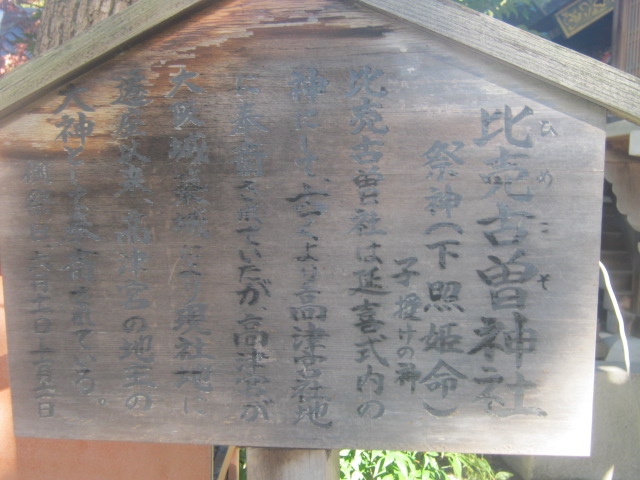 比売古曽神社
ひめこそ
祭神(下照姫命)
子授けの神
比売古曽社は延喜式内の
神にして古くより高津宮社地
に奉斎されていたが高津宮が
大阪城築城により現社地に
遷座以来、高津宮の地主の
大神として奉斎されている。
例祭日 七月十一日